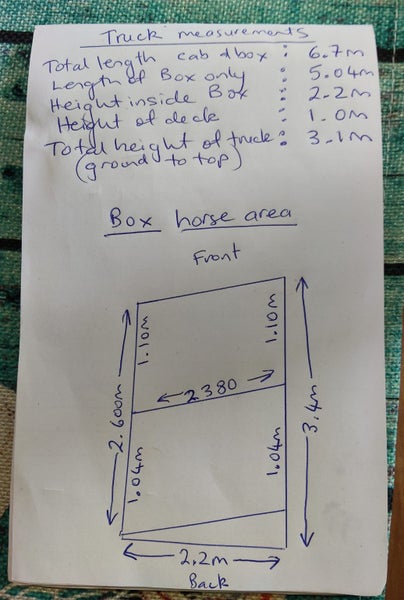 Truck measurements
Total length cab & box : 6.7m
Length of Box only : 5.04m
Height inside Box : 2.2m
Height of deck : 1.0m
Total height of truck : 3.1m
(ground to top)
Box horse area
Front
1.10m 1.10m
2380
2.600m 3.4m
1.04m 1.04m
2.2m
Back